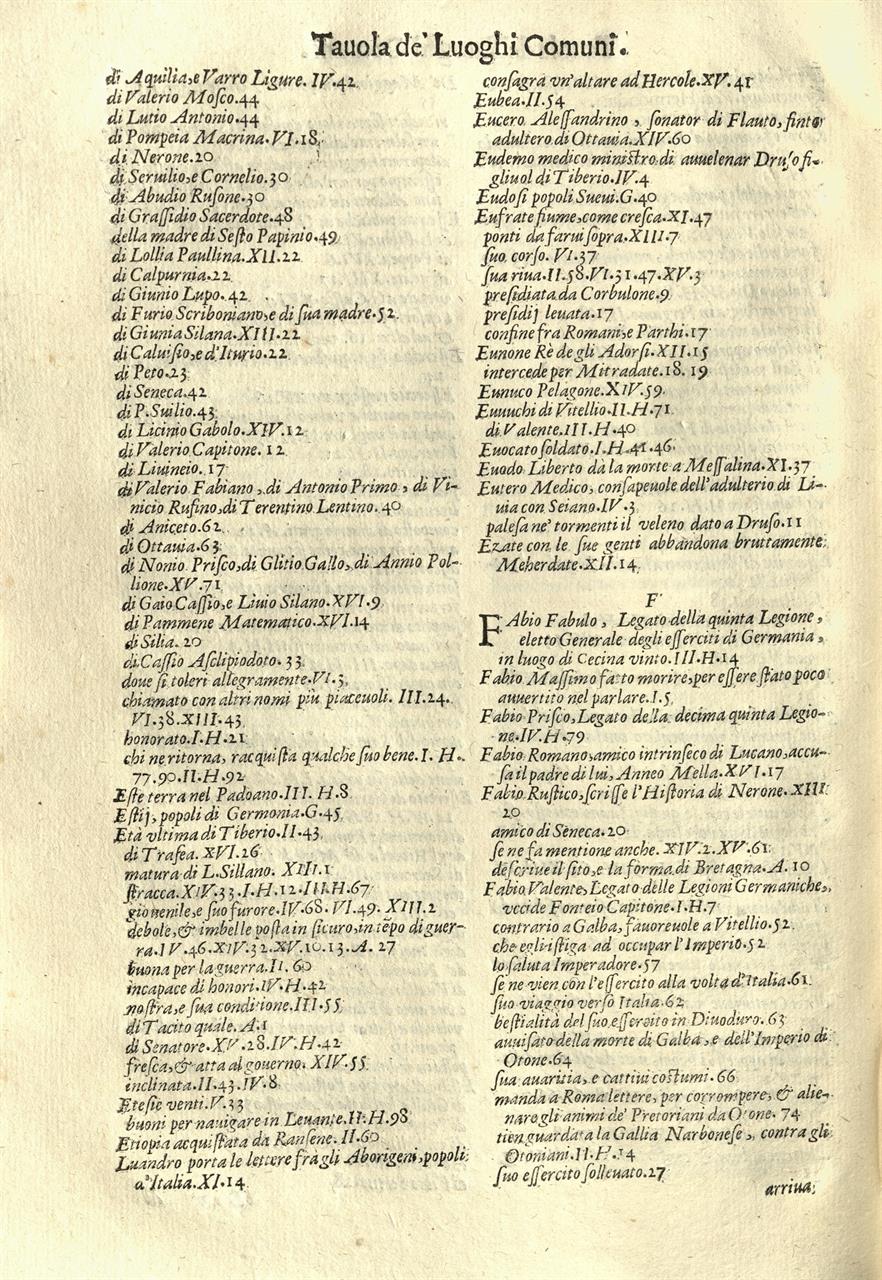 Tauola de' Luoghi Comuni.
di Aquilia, e Varro Ligure. IV. 42
di Valerio Mosco. 44
di Lutio Antonio. 44
di Pompeia Macrina. VI. 18
di Nerone. 20
di Seruilio, e Cornelio. 30
di Abudio Rusone. 30
di Grassidio Sacerdote. 48
della madre di Sesto Papinio. 49
di Lollia Paullina. XII. 22
di Calpurnia. 22
di Giunio Lupo. 42
di Furio Scriboniano, e di sua madre. 52
di Giunia Silana. XIII. 22
di Caluisio, e d'Iturio. 22
di Peto. 23
di Seneca. 42
di P. Suilio. 43
di Licinio Gabolo. XIV. 12
di Valerio Capitone. 12
di Liuineio. 17
di Valerio Fabiano, di Antonio Primo, di Vi-
nicio Rufino, di Terentino Lentino. 40
di Aniceto. 62
di Ottauia. 63
di Nonio Prisco, di Glitio Gallo, di Annio Pol-
lione. XV. 71
di Gaio Cassio, e Liuio Silano. XVI. 9
di Pammene Matematico. XVI. 14
di Silia. 20
di Cassio Asclipiodoto. 33
doue si toleri allegramente. VI. 3
chiamato con altri nomi più piaceuoli. III. 24.
VI. 38. XIII. 43
honorato. I. H. 21
chi ne ritorna, racquista qualche suo bene. I. H.
77. 90. II. H. 92
Este terra nel Padoano. III. H. 8
Estij, popoli di Germonia. G. 45
Età vltima di Tiberio. II. 43
di Trasea. XVI. 26
matura di L. Sillano. XIII. 1
stracca. XIV. 33. I. H. 12. III. H. 67
giouenile, e suo furore. IV. 68. VI. 49. XIII. 2
debole, & imbelle posta in sicuro, in tẽpo di guer-
ra. IV. 46. XIV. 32. XV. 10. 13. A. 27
buona per la guerra. II. 60
incapace di honori. IV. H. 42
nostra, e sua condizione. III. 55
di Tacito quale. A. 1
di Senatore. XV. 28. IV. H. 42
fresca, & atta al gouerno. XIV. 55
inclinata. II. 43. IV. 8
Etesie venti. V. 33
buoni per nauigare in Leuante. II. H. 98
Etiopia acquistata da Ransene. II. 60
Luandro porta le lettere frà gli Aborigeni, popoli
d'Italia. XI. 14
consagra vn'altare ad Hercole. XV. 41
Eubea. II. 54
Eucero Alessandrino, sonator di Flauto, finto
adultero di Ottauia. XIV. 60
Eudemo medico ministro di auuelenar Druso fi-
gliuol di Tiberio. IV. 4
Eudosi popoli Sueui. G. 40
Eufrate fiume, come cresca. XI. 47
ponti da farui sopra. XIII. 7
suo corso. VI. 37
sua riua. II. 58. VI. 31. 47. XV. 3
presidiata da Corbulone. 9
presidij leuata. 17
confine fra Romani, e Parthi. 17
Eunone Rè de gli Adorsi. XII. 15
intercede per Mitradate. 18. 19
Eunuco Pelagone. XIV. 59
Euuuchi di Vitellio. II. H. 71
di Valente. III. H. 40
Euocato soldato. I. H. 41. 46
Euodo Liberto dà la morte a Messalina. XI. 37
Eutero Medico, consapeuole dell'adulterio di Li-
uia con Seiano. IV. 3
palesa ne' tormenti il veleno dato a Druso. 11
Ezate con le sue genti abbandona bruttamente
Meherdate. XII. 14
F
FAbio Fabulo, Legato della quinta Legione,
eletto Generale degli esserciti di Germania,
in luogo di Cecina vinto. III. H. 14
Fabio Massimo fatto morire, per essere stato poco
auuertito nel parlare. I. 5
Fabio Prisco, Legato della decima quinta Legio-
ne. IV. H. 79
Fabio Romano, amico intrinseco di Lucano, accu-
sa il padre di lui, Anneo Mella. XVI. 17
Fabio Rustico, scrisse l'Historia di Nerone. XIII.
20
amico di Seneca. 20
se ne fa mentione anche. XIV. 2. XV. 61
descriue il sito, e la forma di Bretagna. A. 10
Fabio Valente, Legato delle Legioni Germaniche,
vccide Fonteio Capitone. I. H. 7
contrario a Galba, fauoreuole a Vitellio. 52
che egli istiga ad occupar l'Imperio. 52
lo saluta Imperadore. 57
se ne vien con l'essercito alla volta d'Italia. 61
suo viaggio verso Italia. 62
bestialità del suo essercito in Diuoduro. 63
auuisato della morte di Galba, e dell'Imperio di
Otone. 64
sua auaritia, e cattiui costumi. 66
manda a Roma lettere, per corrompere, & alie-
nare gli animi de' Pretoriani da Otone. 74
tien guardata la Gallia Narbonese, contra gli
Otoniani. II. H. 14
suo essercito solleuato. 27
arriua